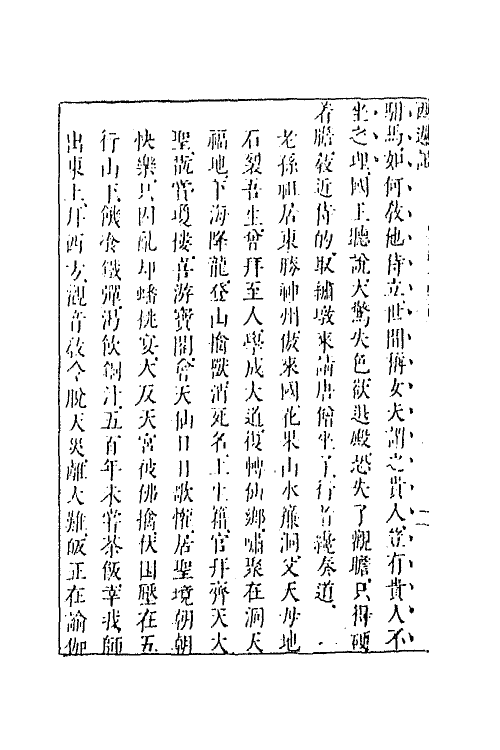 西遊記
駙馬如何敎他侍立世間稱女夫謂之貴人豈有貴人不
坐之理國王聽說大驚失色欲退殿恐失了觀瞻只得硬
着膽敎近侍的取繡墩來請唐僧坐了行者纔奏道
老孫祖居東勝神州傲來國花果山水簾洞父天母地
石裂吾生曾拜至人學成大道復轉仙鄉嘯聚在洞天
福地下海降龍登山擒獸消死名上生籍官拜齊天大
聖翫賞瓊樓喜游寶閣會天仙日日歌懽居聖境朝朝
快樂只因亂却蟠桃宴大反天宮被佛擒伏困壓在五
行山下饑食鐵彈渴飲銅汁五百年未嘗茶飯幸我師
出東土拜西方觀音敎令脫天災離大難皈正在瑜伽